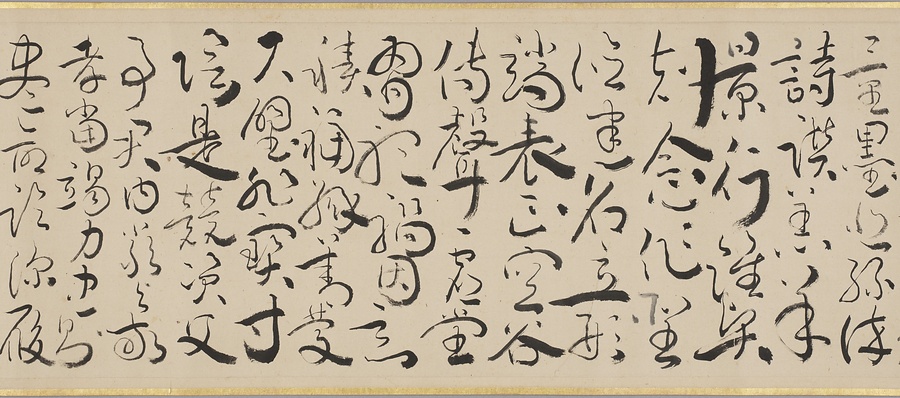 量墨悲絲染
詩讚羔羊
景行維賢
克念作聖
德建名立形
端表正空谷
傳聲虛堂
習聽禍因惡
積福緣善慶
尺璧非寶寸
陰是競資父
事君曰嚴與敬
孝當竭力忠則
盡命臨深履